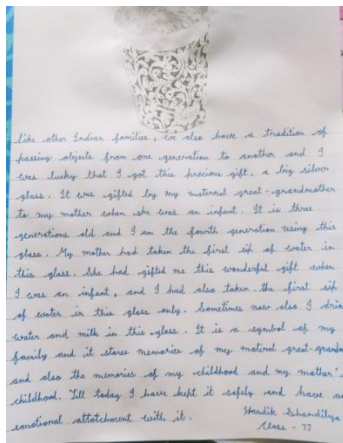 Like other Indian families, we also have a tradition of
passing objects from one generation to another and I
was lucky that I got this precious gift, a big silver
glass. It was gifted by my maternal great-grandmother
to my mother when she was an infant. It is three
generations old and I am the fourth generation using this
glass. My mother had taken the first sip of water in
this glass. She had gifted me this wonderful gift when
I was an infant, and I had also taken the first sip
of water in this glass only. Sometimes now also I drin
water and milk in this glass. It is a symbol of my
family and it stores memories of my maternal great-grandm
and also the memories of my childhood and my mother's
childhood. Till today I have kept it safely and have
emotional attatchment with it.
Hardik Shandilya
Class -